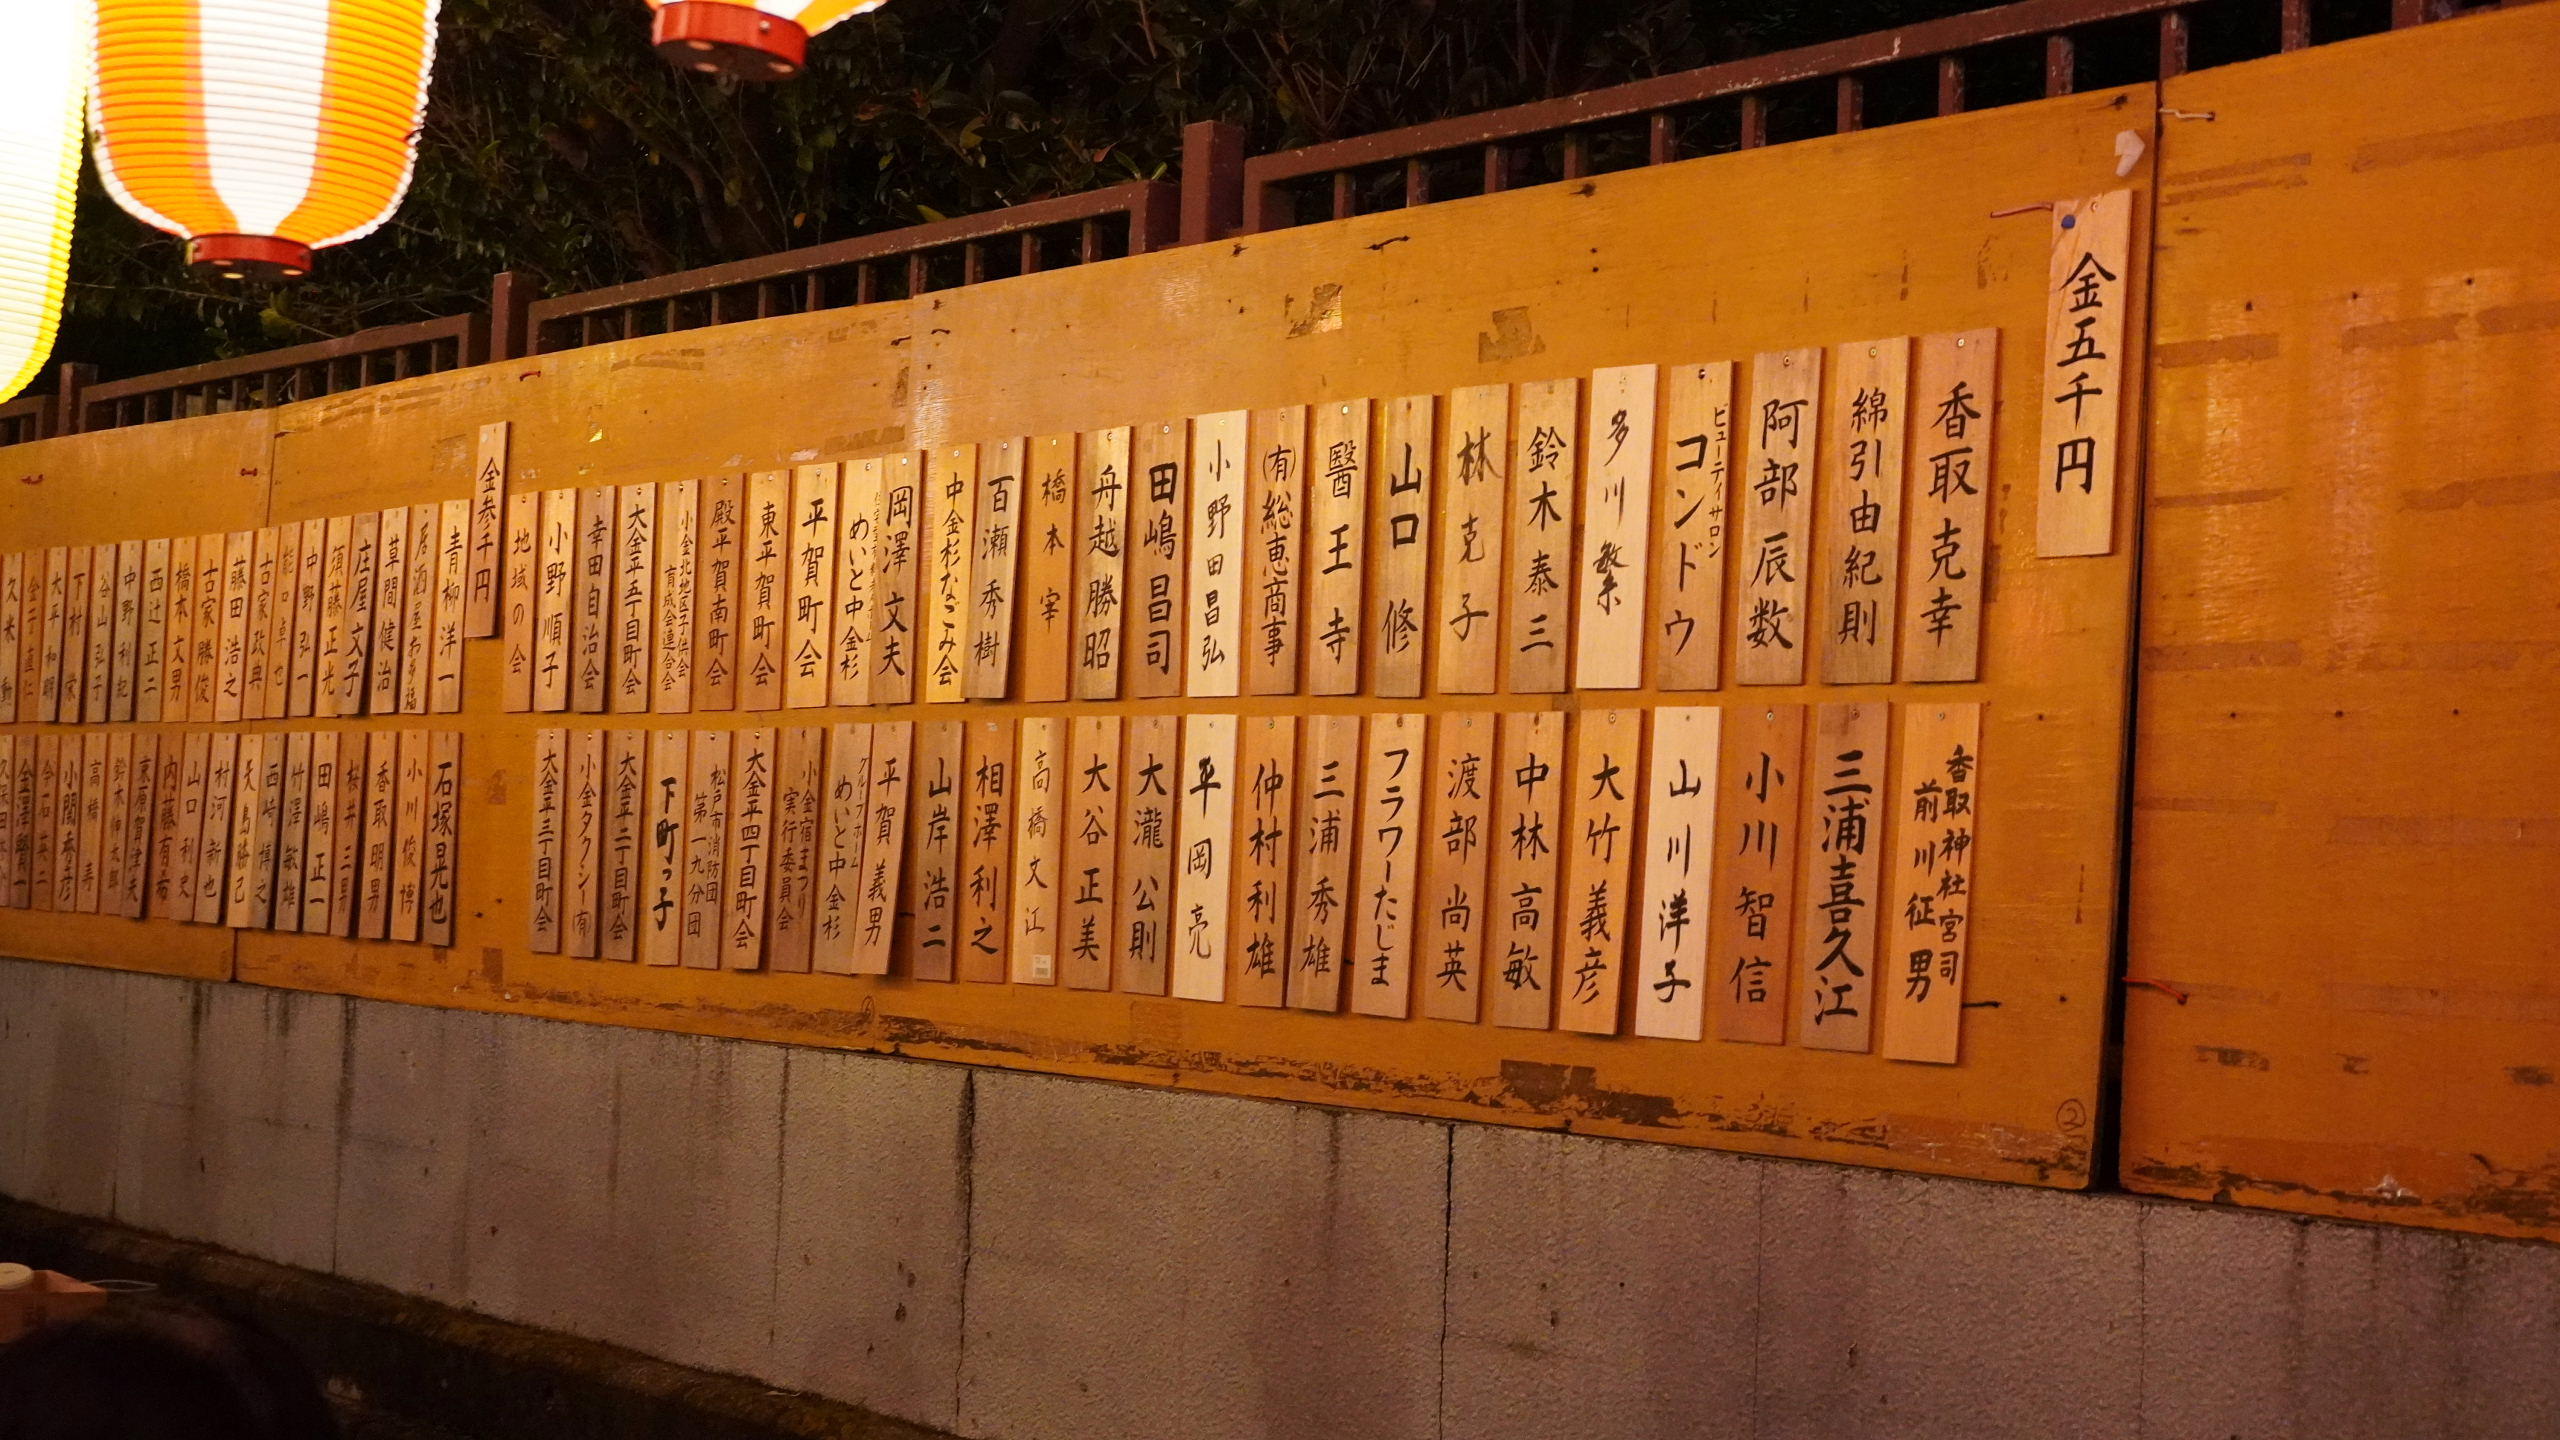 金五千円
香取克幸
綿引由紀則
阿部辰数
ビューティサロン
コンドウ
多川繁
鈴木泰三
林克子
山口修
醫王寺
(有)総恵商事
小野田昌弘
田嶋昌司
舟越勝昭
橋本宰
百瀬秀樹
中金杉なごみ会
岡澤文夫
めいと中金杉
平賀町会
東平賀町会
殿平賀南町会
小金北地区子供会
育成会連合会
大金平五丁目町会
幸田自治会
小野順子
地域の会
香取神社宮司
前川征男
三浦喜久江
小川智信
山川洋子
大竹義彦
中林高敏
渡部尚英
フラワーたじま
三浦秀雄
仲村利雄
平岡亮
大瀧公則
大谷正美
高橋文江
相澤利之
山岸浩二
平賀義男
グループホーム
めいと中金杉
小金宿まつり
実行委員会
大金平四丁目町会
松戸市消防団
第一九分団
下町っ子
大金平二丁目町会
小金タクシー(有)
大金平三丁目町会
金参千円
青柳洋一
居酒屋お多福
草間健治
庄屋文子
須藤正光
中野弘一
能口卓也
古家政典
藤田浩之
古家勝俊
橋本文男
西辻正二
中野利紀
谷山弘子
下村栄
大平和明
金子直仁
久米勲
石塚晃也
小川俊博
香取明男
桜井三男
田嶋正一
竹澤敏雄
西崎博之
長島勝己
村河新也
山口利史
内藤有希
東原賀津夫
鈴木伸太郎
高橋寿
小関秀彦
今石英二
金澤賢一
②